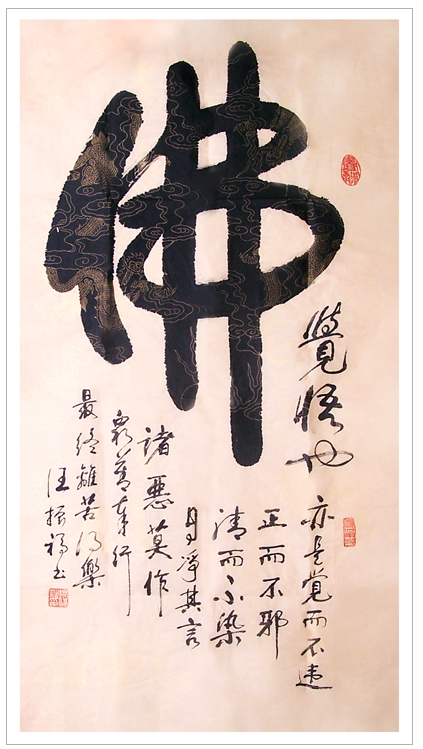 佛
覺悟也 亦是覺而不迷
正而不邪
清而不染
自淨其言
諸惡莫作
眾善奉行
最終離苦得樂
汪振福书